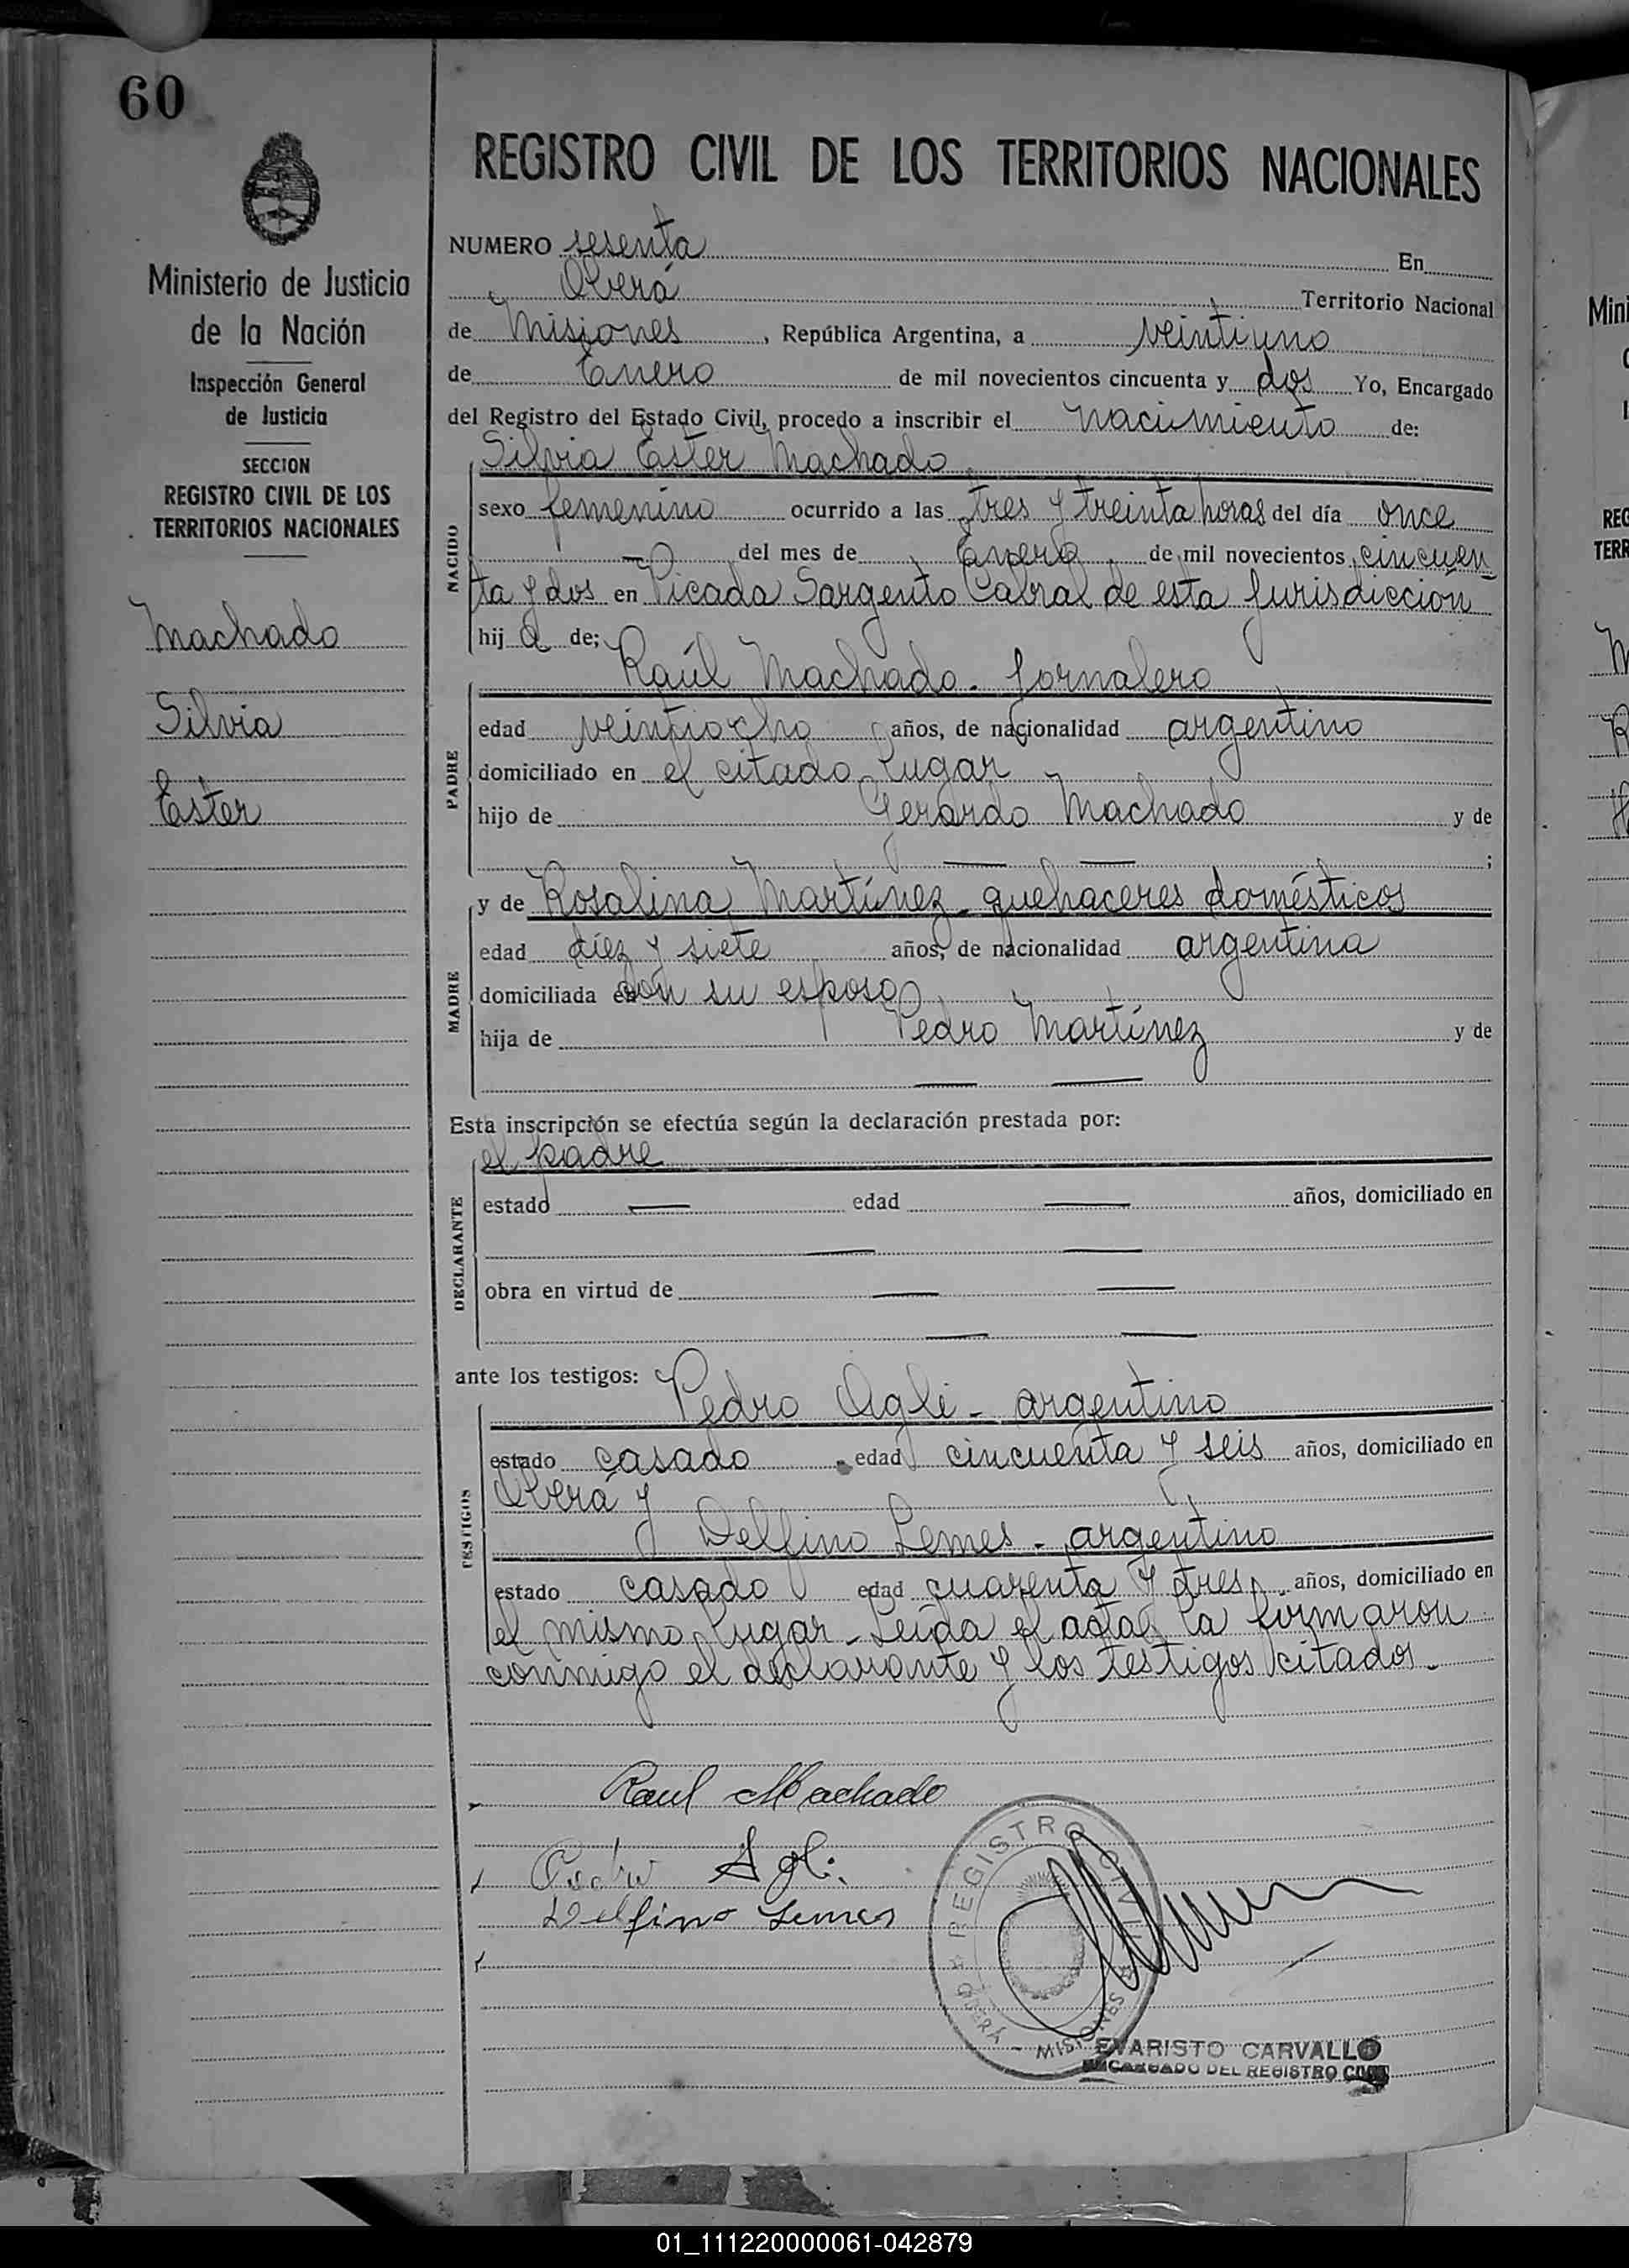 60
REGISTRO CIVIL DE LOS TERRITORIOS NACIONALES
Ministerio de Justicia
de la Nación
Inspección General
de Justicia
SECCION
REGISTRO CIVIL DE LOS
TERRITORIOS NACIONALES
Machado
Silvia
Ester
NUMERO sesenta En
Oberá Territorio Nacional
de Misiones, República Argentina, a veintiuno
de Enero de mil novecientos cincuenta y dos Yo, Encargado
del Registro del Estado Civil, procedo a inscribir el nacimiento de:
Silvia Ester Machado
NACIDO
sexo femenino ocurrido a las tres y treinta horas del día once
— del mes de Enero de mil novecientos cincuen
ta y dos en Picada Sargento Cabral de esta Jurisdicción
hij a de;
Raúl Machado - Jornalero
PADRE
edad veintiocho años, de nacionalidad argentino
domiciliado en el citado lugar
hijo de Gerardo Machado y de
— — ;
y de Rosalina Martínez - quehaceres domésticos
MADRE
edad diez y siete años, de nacionalidad argentina
domiciliada en con su esposo
hija de Pedro Martínez y de
— —
Esta inscripción se efectúa según la declaración prestada por:
el padre
DECLARANTE
estado — edad — años, domiciliado en
— —
obra en virtud de — —
— —
ante los testigos: Pedro Agli - argentino
TESTIGOS
estado casado edad cincuenta y seis años, domiciliado en
Oberá y
Delfino Lemes - argentino
estado casado edad cuarenta y tres años, domiciliado en
el mismo lugar - Leída el acta la firmaron
conmigo el declarante y los testigos citados.
Raul Machado
Pedro Agli
Delfino Lemes
REGISTRO CIVIL
OBERÁ - MISIONES
EVARISTO CARVALLO
ENCARGADO DEL REGISTRO CIVIL
Mini
REG
TERR
01_111220000061-042879